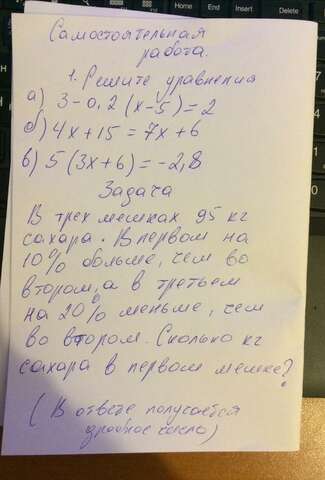 Самостоятельная
работа.
1. Решите уравнения
а) 3-0,2(x-5)=2
б) 4x+15=7x+6
в) 5(3x+6)=-2,8
Задача
В трех мешках 95 кг
сахара. В первом на
10% больше, чем во
втором, а в третьем
на 20% меньше, чем
во втором. Сколько кг
сахара в первом мешке?
(В ответе получается
дробное число)